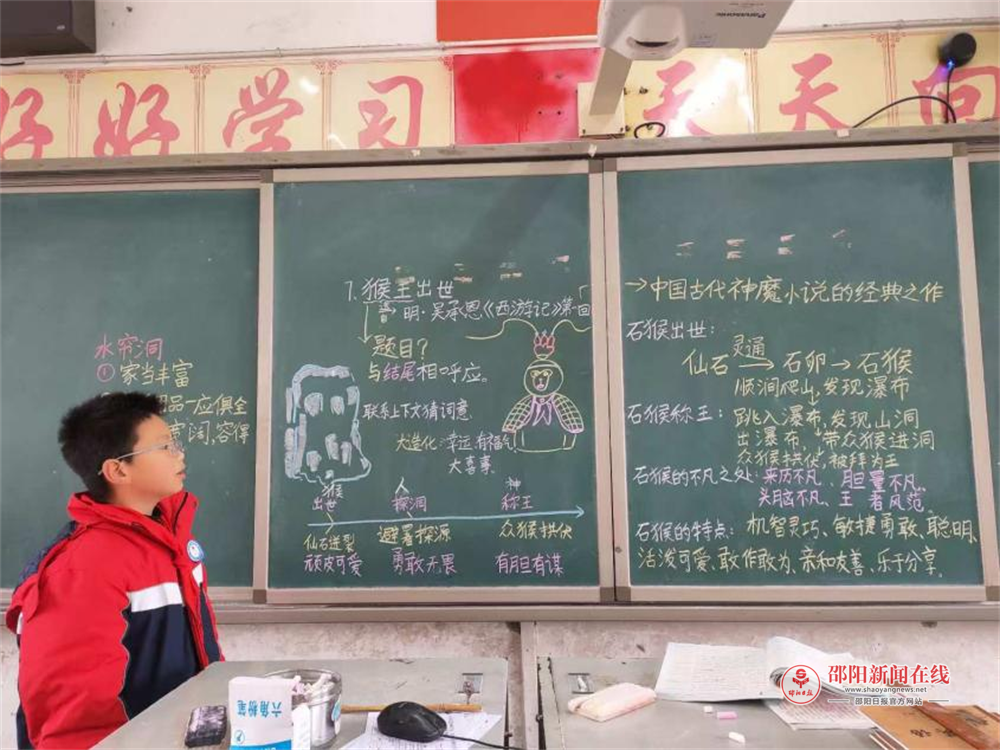 Panasonic
好好学习
天天向
水帘洞
① 家当丰富
品一应俱全
阔,容得
7.猴王出世
明·吴承恩《西游记》第一回
题目?
与结尾相呼应。
联系上下文猜词意
大造化:幸运,有福气
大喜事。
猴 人 神
出世 探洞 称王
仙石迸裂 避暑探源 众猴拱伏
顽皮可爱 勇敢无畏 有胆有谋
→中国古代神魔小说的经典之作
石猴出世:
灵通
仙石→石卵→石猴
顺涧爬山,发现瀑布
石猴称王: 跳入瀑布,发现山洞
出瀑布,带众猴进洞
众猴拱伏,被拜为王
石猴的不凡之处:来历不凡、胆量不凡、
头脑不凡、王者风范。
石猴的特点: 机智灵巧、敏捷勇敢、聪明、
活泼可爱、敢作敢为、亲和友善、乐于分享。
六角粉笔
邵阳日报
邵阳新闻在线
www.shaoyangnews.net
邵阳日报官方网站